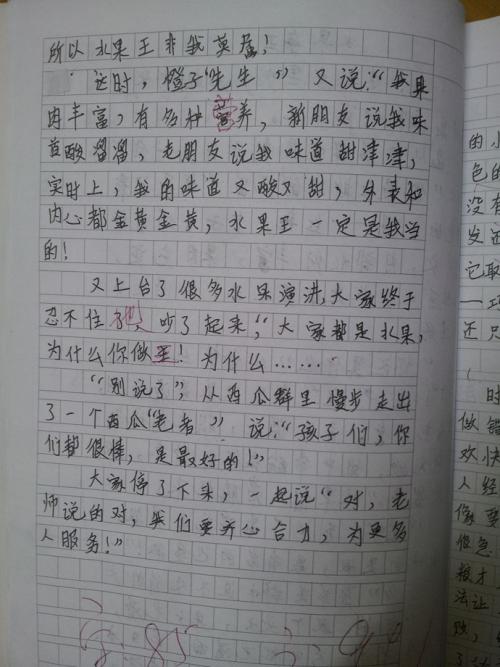 所以水果王非我莫属!
这时，橙子“先生”又说：“我果
肉丰富，有多种营养，新朋友说我味
道酸溜溜，老朋友说我味道甜津津，
实时上，我的味道又酸又甜，外表和
内心都金黄金黄，水果王一定是我当
的!
又上台了很多水果演讲，大家终于
忍不住了，吵了起来，“大家都是水果，
为什么你做王！为什么……
“别说了”，从西瓜群里慢步走出
了一个西瓜“老者”说：“孩子们，你
们都很棒，是最好的！”
大家停了下来，一起说“对，老
师说的对，我们要齐心合力，为更多
人服务！”
的
色的
没有
发
它取
一
还只
时
做错
欢快
人经
像要
但急
按才
法让
败，
85